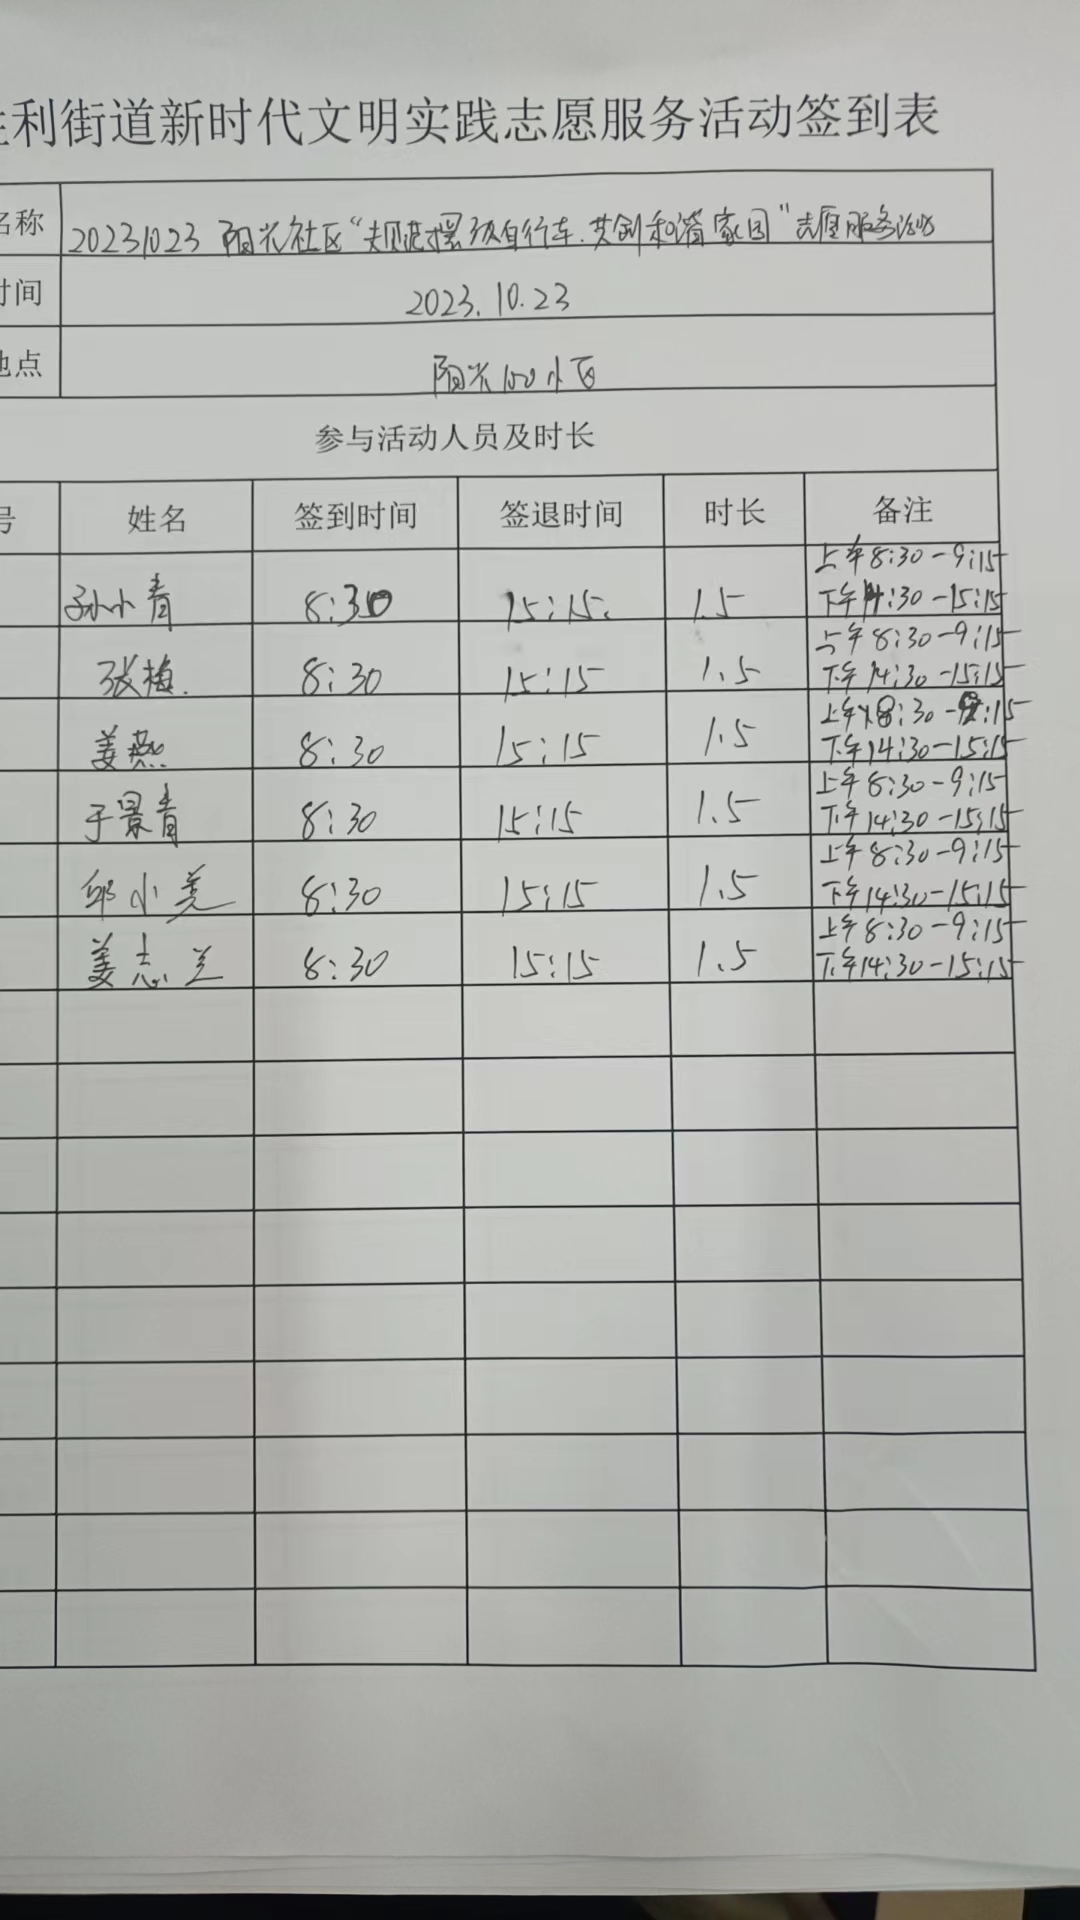 利街道新时代文明实践志愿服务活动签到表
名称 20231023 阳光社区“规范摆放自行车.共创和谐家园”志愿服务活动
时间 2023.10.23
地点 阳光100小区
参与活动人员及时长
号 姓名 签到时间 签退时间 时长 备注
孙小青 8:30 15:15. 1.5 上午8:30-9:15
下午14:30-15:15
张梅. 8:30 15:15 1.5 上午8:30-9:15
下午14:30-15:15
姜燕 8:30 15:15 1.5 上午8:30-9:15
下午14:30-15:15
于景青 8:30 15:15 1.5 上午8:30-9:15
下午14:30-15:15
邱小 8:30 15:15 1.5 上午8:30-9:15
下午14:30-15:15
姜志兰 8:30 15:15 1.5 上午8:30-9:15
下午14:30-15:15